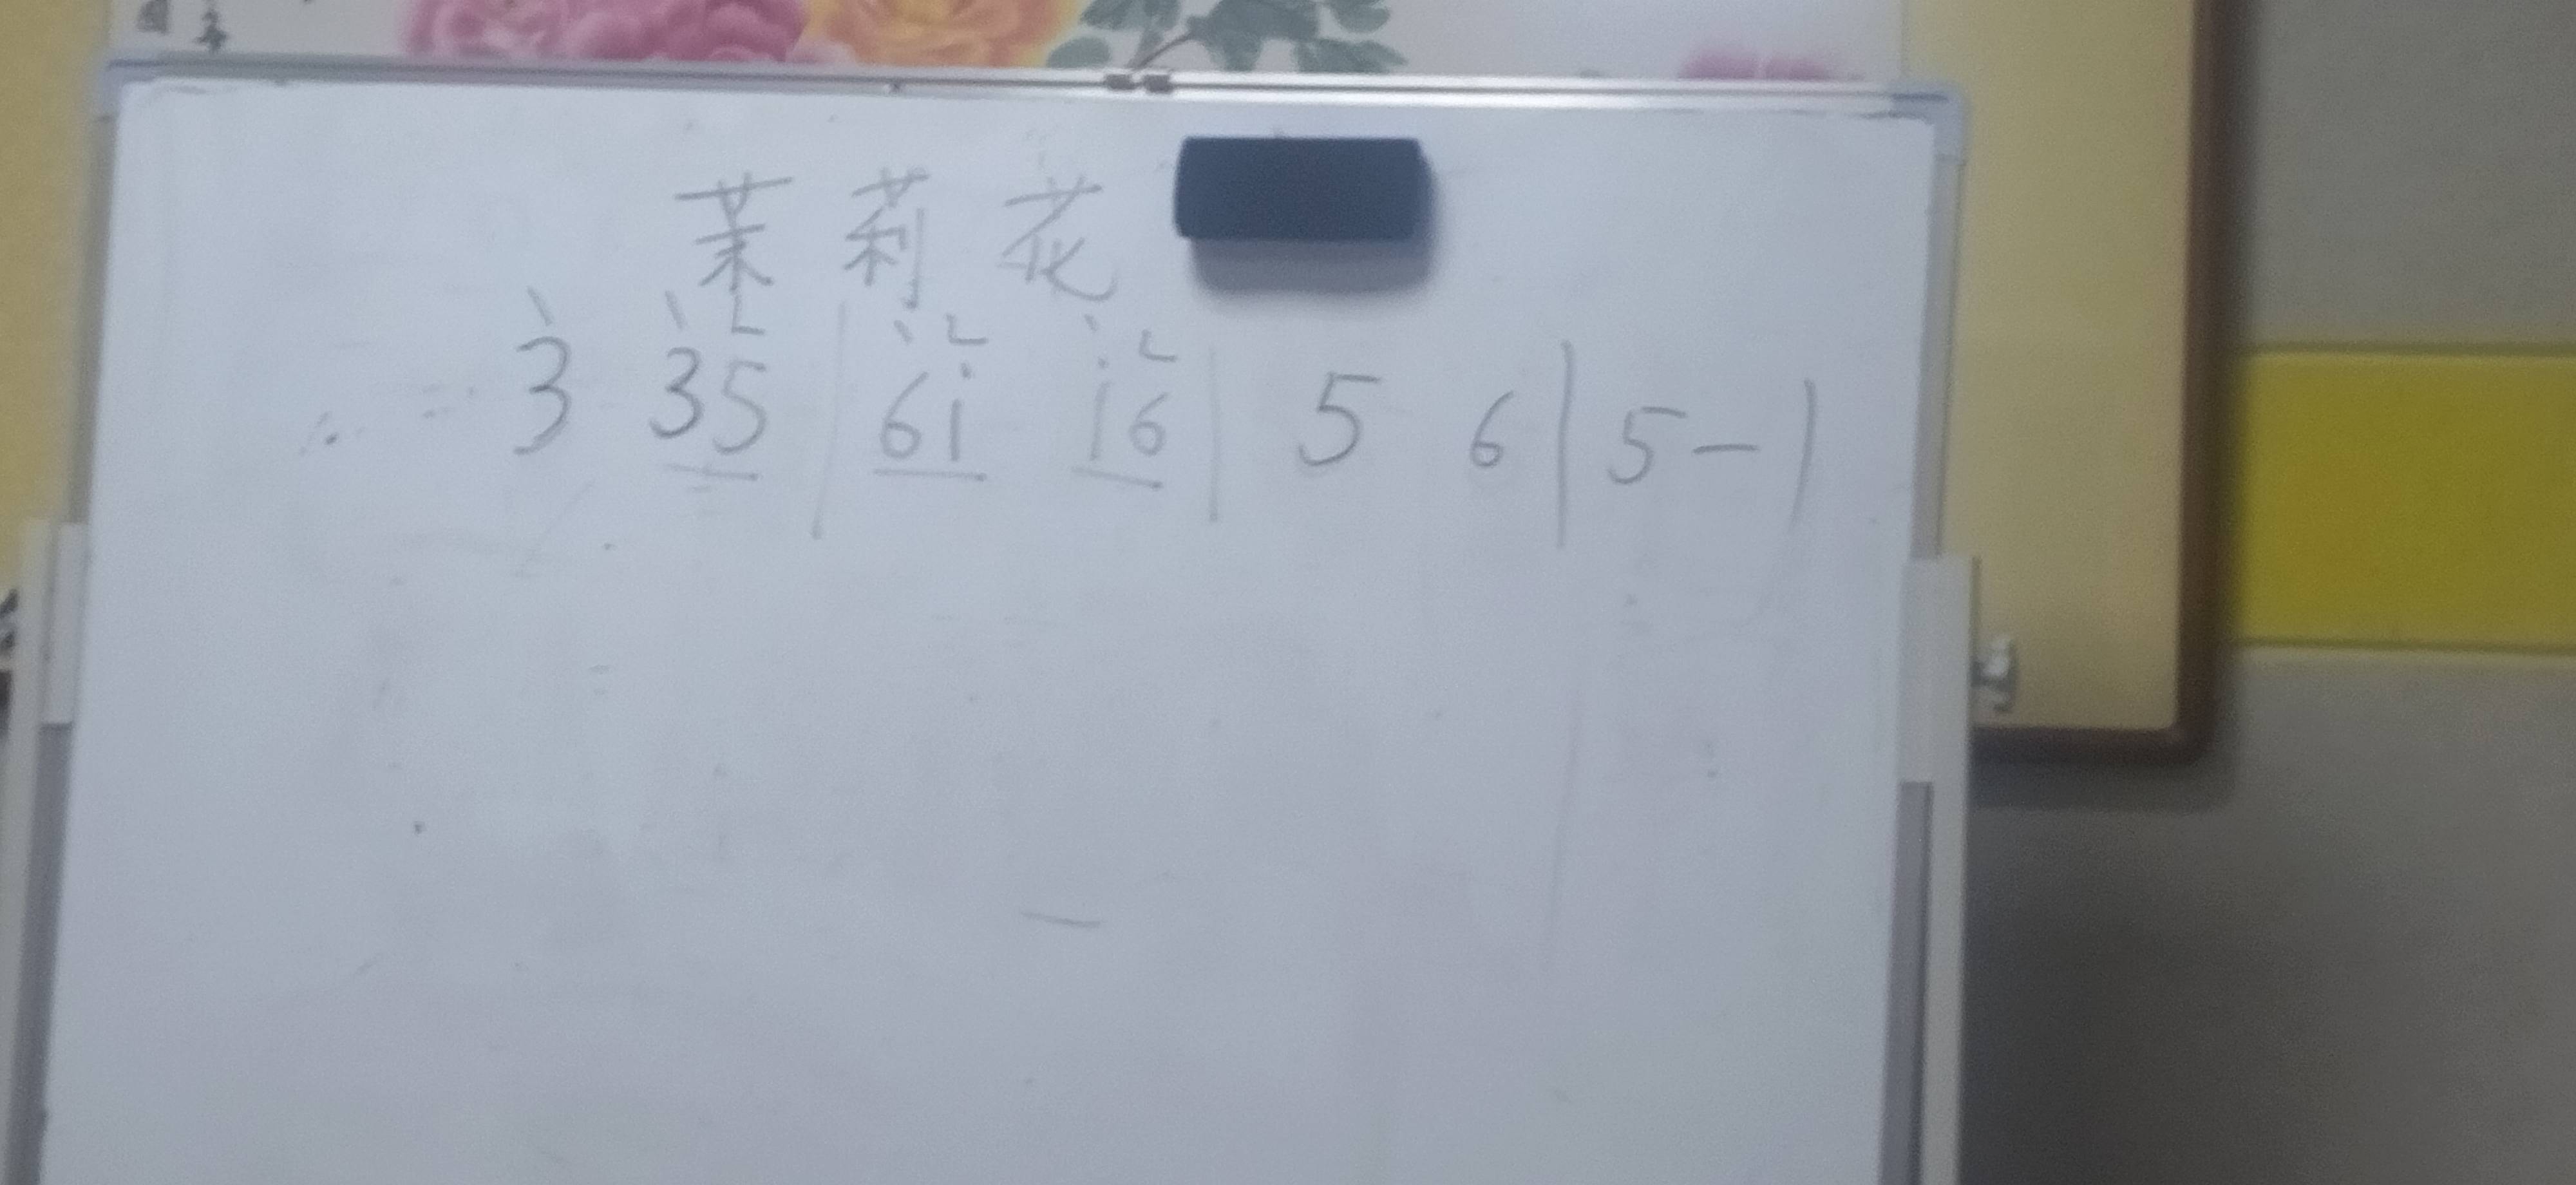 茉莉花
3 35 | 6i i6 | 5 6 | 5 - |